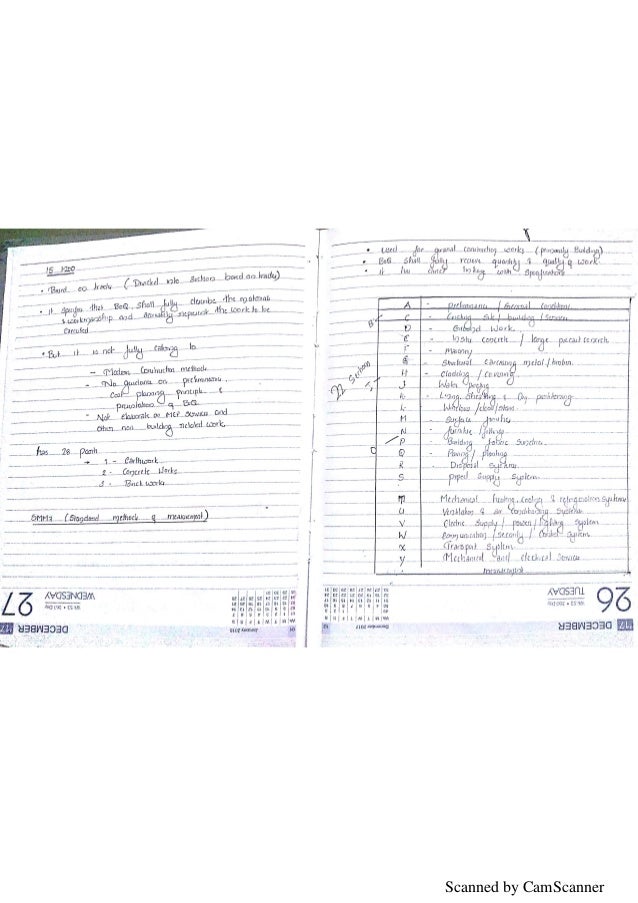 IS 1200
• Based on trades (Divided into Sections based on trades)
• it specifies that BoQ Shall fully describe the materials
& workmanship and accurately represent the work to be
executed
• But it is not fully catering to
- Modern Construction methods
- No guidance on preliminaries,
cost planning principle &
of BQ
- Not elaborate on MEP Services and
other non building related work.
has 28 parts
→ 1 - Earthwork
2 - Concrete Works
3 - Brick works
SMM7 (Standard method of measurement)
WEDNESDAY
27
DECEMBER
January 2018
• Used for general construction works (primarily Building)
• BoQ Shall fully quantity & quality of work
• it has linkage with Specification
22 Sections
A - preliminaries / General conditions
C - Existing Site / building / Services
D - Ground Work
E - Insitu concrete / large precast concrete
F - Masonry
G - Structural / Carcassing metal / timber
H - Cladding / Covering
J Water proofing
K - Lining, Sheathing & Dry partitioning
L - Windows / doors / stairs
M - Surface finishes
N - furniture / fittings
P - Building fabric Sundries
Q - Paving / planting
R - Disposal Systems
S - piped Supply System
T Mechanical heating, cooling & refrigeration systems
U Ventilation & air Conditioning Systems
V Electric Supply / power / lighting system
W Communication / security / Control System
X Transport System
Y Mechanical and electrical Service
measurement
TUESDAY
26
DECEMBER
December 2017
Scanned by CamScanner